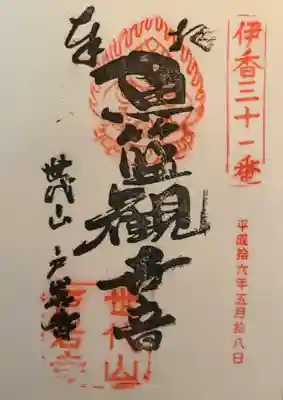 伊香三十一番
平成拾六年五月拾八日
奉拝
魚籃観世音
世代山
戸岩寺
世代山
戸岩寺